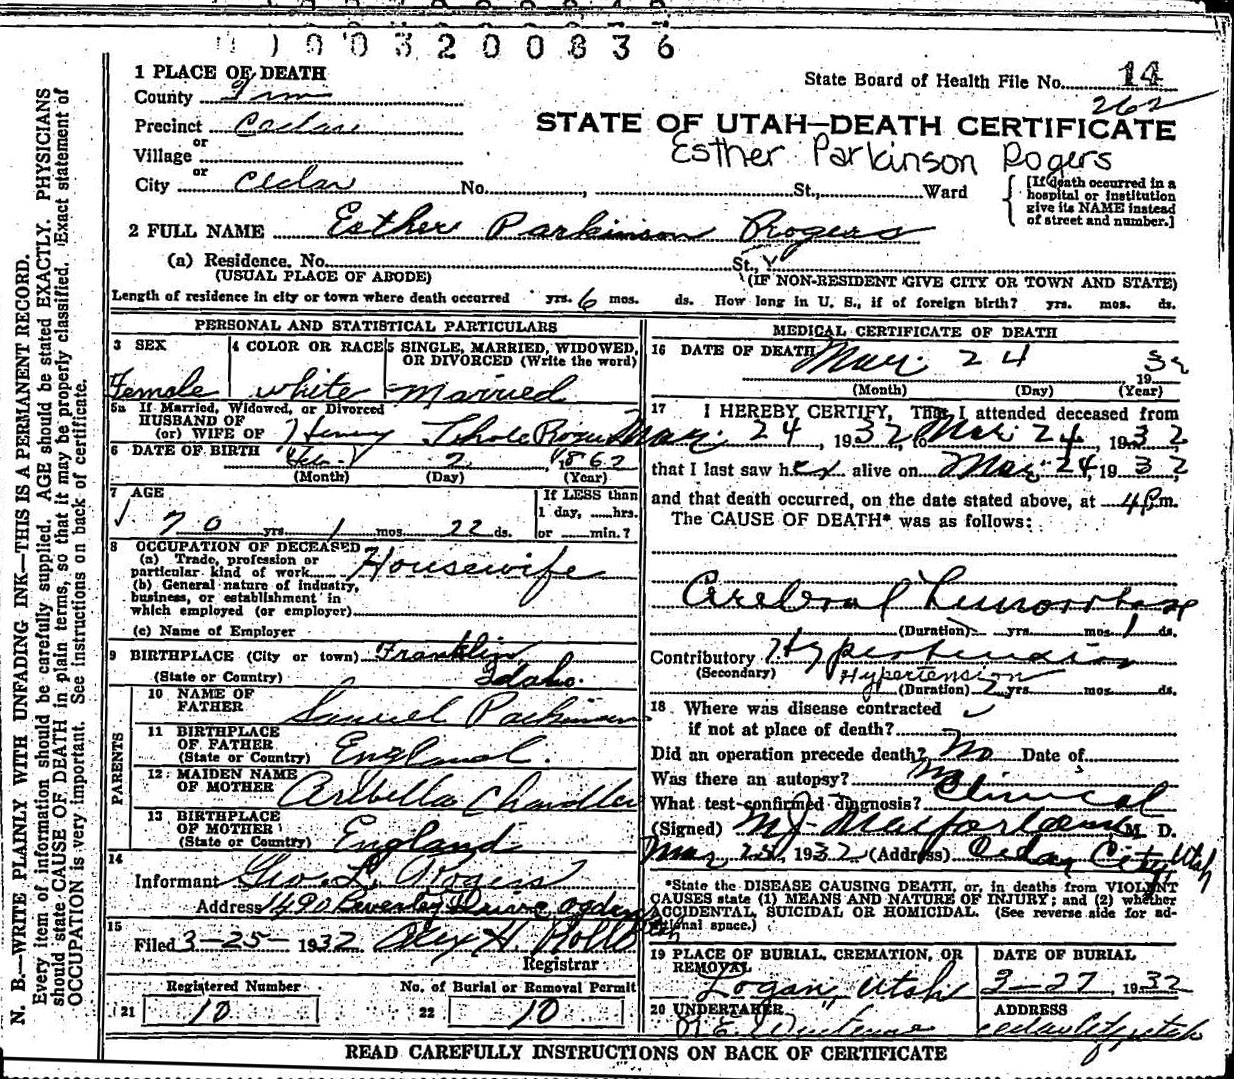 1003200836
1 PLACE OF DEATH
State Board of Health File No. 14
County
262
Precinct Cedar
STATE OF UTAH—DEATH CERTIFICATE
or
Village
Esther Parkinson Rogers
or
City Cedar No. , St., Ward
[If death occurred in a
hospital or institution
give its NAME instead
of street and number.]
2 FULL NAME Esther Parkinson Rogers
(a) Residence. No. St.,
(USUAL PLACE OF ABODE) (IF NON-RESIDENT GIVE CITY OR TOWN AND STATE)
Length of residence in city or town where death occurred yrs. 6 mos. ds. How long in U. S., if of foreign birth? yrs. mos. ds.
PERSONAL AND STATISTICAL PARTICULARS
3 SEX 4 COLOR OR RACE 5 SINGLE, MARRIED, WIDOWED,
OR DIVORCED (Write the word)
Female white Married
5a If Married, Widowed, or Divorced
HUSBAND OF
(or) WIFE OF Henry Rogers
6 DATE OF BIRTH Feb. 2 1862
(Month) (Day) (Year)
7 AGE
If LESS than
1 day, hrs.
70 yrs. 1 mos. 22 ds. or min.?
8 OCCUPATION OF DECEASED
(a) Trade, profession or
particular kind of work Housewife
(b) General nature of industry,
business, or establishment in
which employed (or employer)
(c) Name of Employer
9 BIRTHPLACE (City or town) Franklin
(State or Country) Idaho.
PARENTS
10 NAME OF
FATHER Samuel Parkinson
11 BIRTHPLACE
OF FATHER
(State or Country) England.
12 MAIDEN NAME
OF MOTHER Arbella Chandler
13 BIRTHPLACE
OF MOTHER
(State or Country) England
14
Informant Geo. L. Rogers
Address 1490 Beverley Drive Ogden Utah
15
Filed 3-25- 1932
Registrar
Registered Number No. of Burial or Removal Permit
21 10 22 10
MEDICAL CERTIFICATE OF DEATH
16 DATE OF DEATH Mar. 24 1932
(Month) (Day) (Year)
17 I HEREBY CERTIFY, That I attended deceased from
Mar. 24, 1932, to Mar. 24, 1932
that I last saw her alive on Mar. 24, 1932
and that death occurred, on the date stated above, at 4 P.m.
The CAUSE OF DEATH* was as follows:
Cerebral Hemorrhage
(Duration) yrs. mos. 1 ds.
Contributory Hypertension
(Secondary) Hypertension
(Duration) 2 yrs. mos. ds.
18 Where was disease contracted
if not at place of death?
Did an operation precede death? No Date of
Was there an autopsy? No
What test confirmed diagnosis? Clinical
(Signed) M. J. Macfarlane, M. D.
Mar 25, 1932 (Address) Cedar City, Utah
*State the DISEASE CAUSING DEATH, or, in deaths from VIOLENT
CAUSES state (1) MEANS AND NATURE OF INJURY; and (2) whether
ACCIDENTAL, SUICIDAL OR HOMICIDAL. (See reverse side for ad-
ditional space.)
19 PLACE OF BURIAL, CREMATION, OR
REMOVAL
Logan, Utah
DATE OF BURIAL
3-27, 1932
20 UNDERTAKER
ADDRESS
Cedar City, Utah
READ CAREFULLY INSTRUCTIONS ON BACK OF CERTIFICATE
N. B.—WRITE PLAINLY WITH UNFADING INK—THIS IS A PERMANENT RECORD.
Every item of information should be carefully supplied. AGE should be stated EXACTLY. PHYSICIANS
should state CAUSE OF DEATH in plain terms, so that it may be properly classified. Exact statement of
OCCUPATION is very important. See instructions on back of certificate.